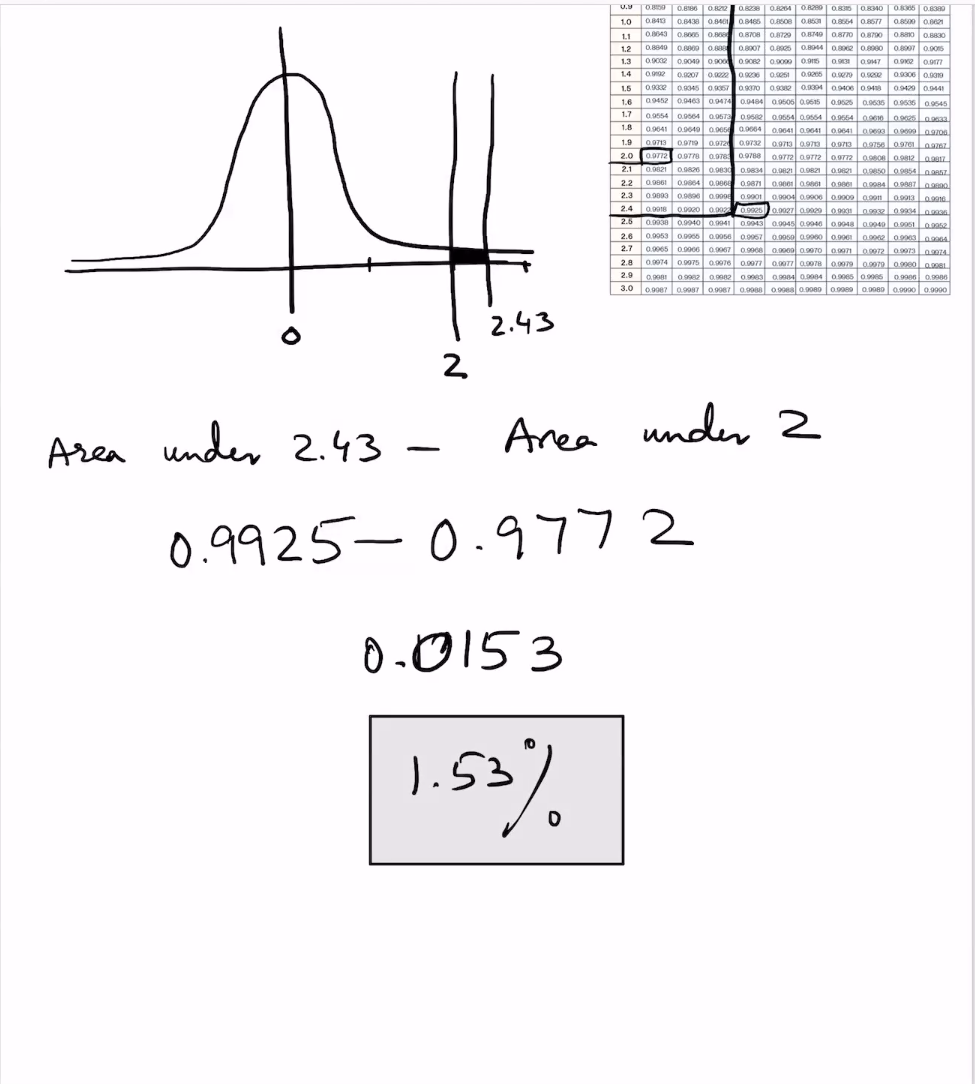 0.9 0.8159 0.8186 0.8212 0.8238 0.8264 0.8289 0.8315 0.8340 0.8365 0.8389
1.0 0.8413 0.8438 0.8461 0.8485 0.8508 0.8531 0.8554 0.8577 0.8599 0.8621
1.1 0.8643 0.8665 0.8686 0.8708 0.8729 0.8749 0.8770 0.8790 0.8810 0.8830
1.2 0.8849 0.8869 0.8888 0.8907 0.8925 0.8944 0.8962 0.8980 0.8997 0.9015
1.3 0.9032 0.9049 0.9066 0.9082 0.9099 0.9115 0.9131 0.9147 0.9162 0.9177
1.4 0.9192 0.9207 0.9222 0.9236 0.9251 0.9265 0.9279 0.9292 0.9306 0.9319
1.5 0.9332 0.9345 0.9357 0.9370 0.9382 0.9394 0.9406 0.9418 0.9429 0.9441
1.6 0.9452 0.9463 0.9474 0.9484 0.9505 0.9515 0.9525 0.9535 0.9535 0.9545
1.7 0.9554 0.9564 0.9573 0.9582 0.9554 0.9554 0.9554 0.9616 0.9625 0.9633
1.8 0.9641 0.9649 0.9656 0.9664 0.9641 0.9641 0.9641 0.9693 0.9699 0.9706
1.9 0.9713 0.9719 0.9726 0.9732 0.9713 0.9713 0.9713 0.9756 0.9761 0.9767
2.0 0.9772 0.9778 0.9783 0.9788 0.9772 0.9772 0.9772 0.9808 0.9812 0.9817
2.1 0.9821 0.9826 0.9830 0.9834 0.9821 0.9821 0.9821 0.9850 0.9854 0.9857
2.2 0.9861 0.9864 0.9868 0.9871 0.9861 0.9861 0.9861 0.9984 0.9887 0.9890
2.3 0.9893 0.9896 0.9998 0.9901 0.9904 0.9906 0.9909 0.9911 0.9913 0.9916
2.4 0.9918 0.9920 0.9922 0.9925 0.9927 0.9929 0.9931 0.9932 0.9934 0.9936
2.5 0.9938 0.9940 0.9941 0.9943 0.9945 0.9946 0.9948 0.9949 0.9951 0.9952
2.6 0.9953 0.9955 0.9956 0.9957 0.9959 0.9960 0.9961 0.9962 0.9963 0.9964
2.7 0.9965 0.9966 0.9967 0.9968 0.9969 0.9970 0.9971 0.9972 0.9973 0.9974
2.8 0.9974 0.9975 0.9976 0.9977 0.9977 0.9978 0.9979 0.9979 0.9980 0.9981
2.9 0.9981 0.9982 0.9982 0.9983 0.9984 0.9984 0.9985 0.9985 0.9986 0.9986
3.0 0.9987 0.9987 0.9987 0.9988 0.9988 0.9989 0.9989 0.9989 0.9990 0.9990
0
2
2.43
Area under 2.43 – Area under 2
0.9925 – 0.9772
0.0153
1.53%